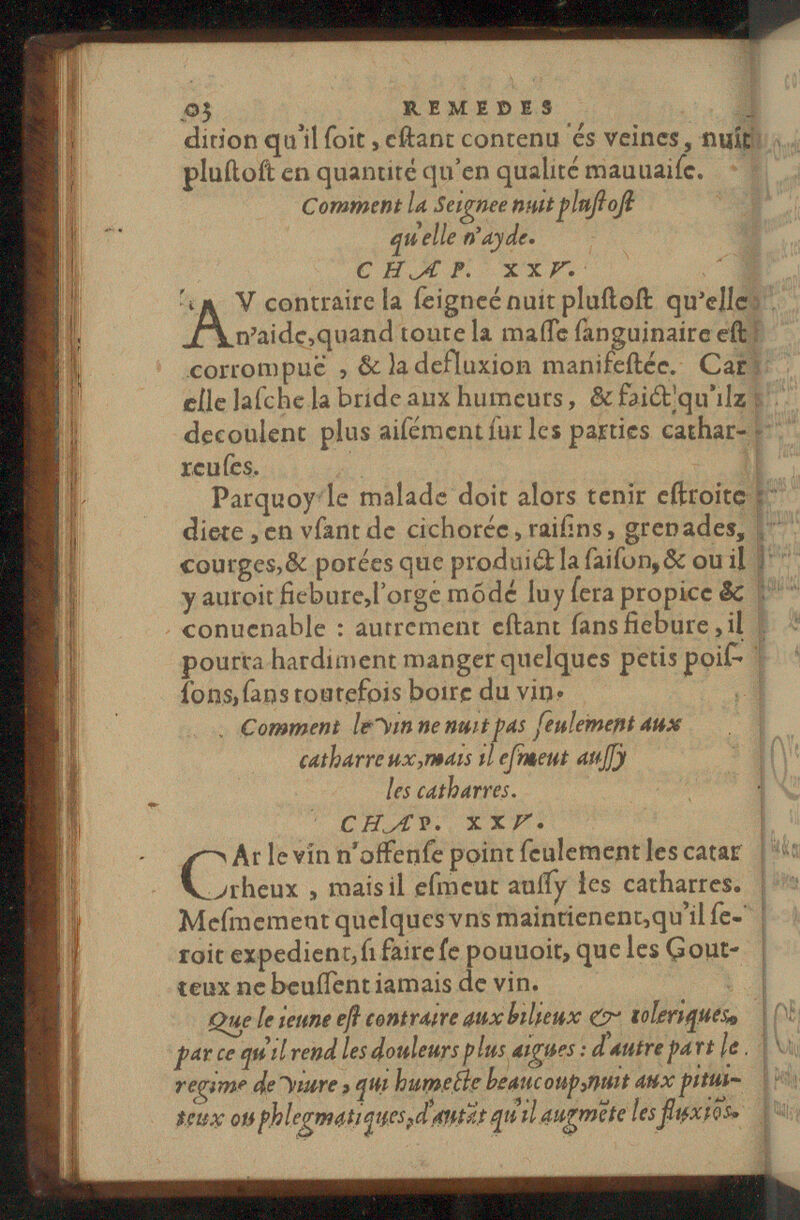 93 REMEDES
dition qu'il soit, estant contenu és veines, nuit
plustost en quantité qu'en qualité mauuaise.
Comment la Seignee nuit plustost
qu'elle n'ayde.
CHAP. XXV.
AV contraire la seigneé nuit plustost qu'elle
n'aide, quand toute la masse sanguinaire est
corrompuë, & la defluxion manifestée. Car
elle lasche la bride aux humeurs, & faict qu'ilz
decoulent plus aisément sur les parties cathar-
reuses.
Parquoy le malade doit alors tenir estroite
diete, en vsant de cichorée, raisins, grenades,
courges, & porées que produict la saison, & ou il
y auroit fiebure, l'orge mõdé luy sera propice &
conuenable : autrement estant sans fiebure, il
pourra hardiment manger quelques petis pois-
sons, sans toutefois boire du vin.
Comment le vin ne nuit pas seulement aux
catharreux, mais il esmeut aussy
les catharres.
CHAP. XXV.
CAr le vin n'offense point seulement les catar
rheux, mais il esmeut aussy les catharres.
Mesmement quelques vns maintienent, qu'il se-
roit expedient, si faire se pouuoit, que les Gout-
teux ne beussent iamais de vin.
Que le ieune est contraire aux bilieux & coleriques,
par ce qu'il rend les douleurs plus aigues : d'autre part le
regime de viure, qui humecte beaucoup, nuit aux pitui-
teux ou phlegmatiques, d'autãt qu'il augmẽte les fluxiõs.